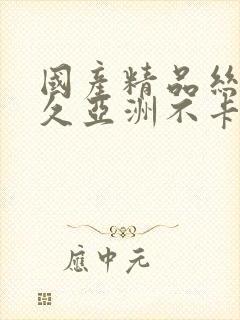 國產精品絲
久亞洲不卡
應中元